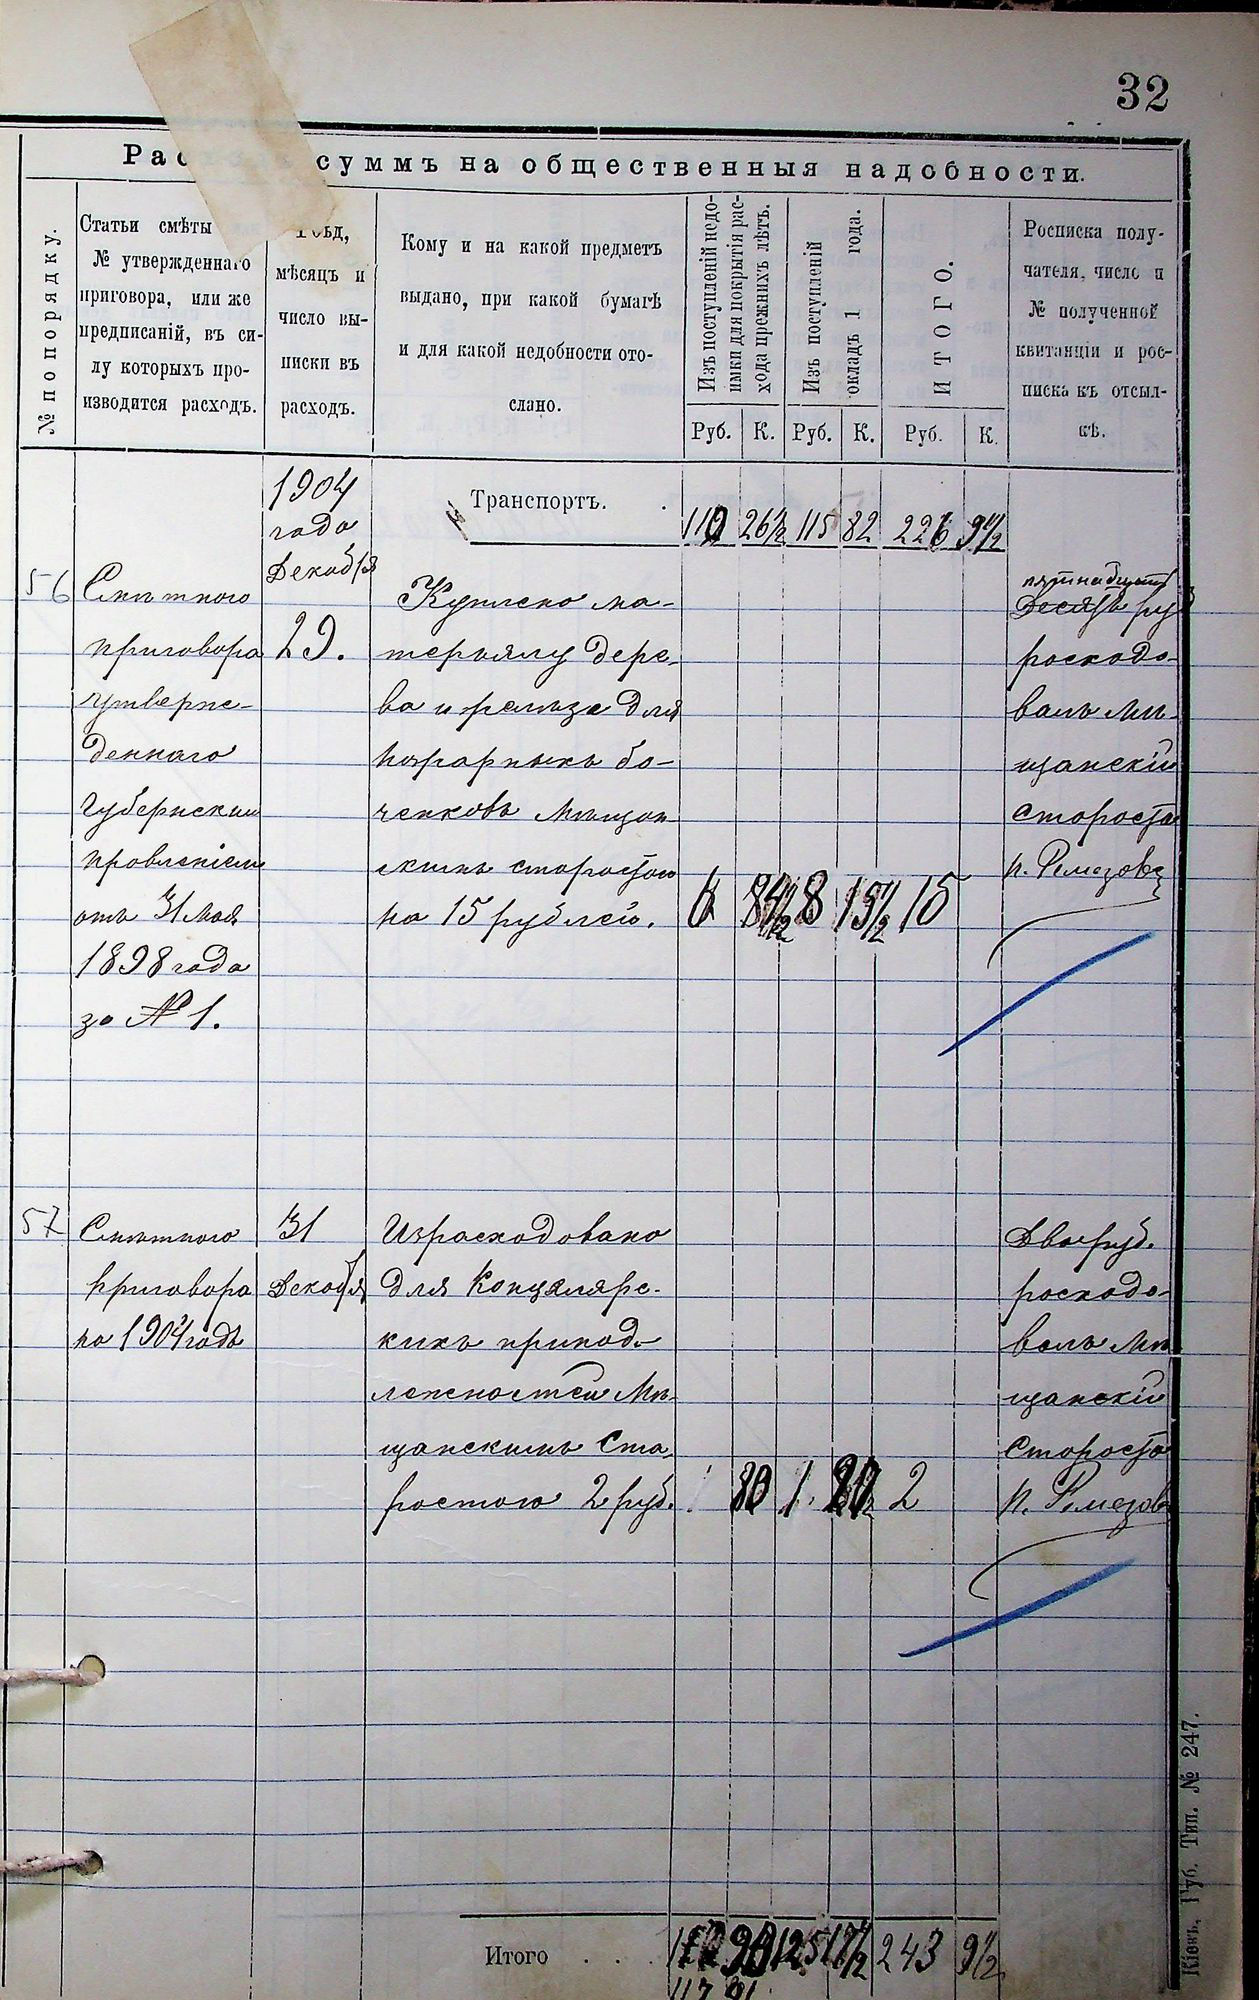 32
суммъ на общественныя надобности.
№ по порядку.
Статьи смѣты
№ утвержденнаго
приговора, или же
предписаній, въ си-
лу которыхъ про-
изводится расходъ.
мѣсяцъ и
число вы-
писки въ
расходъ.
Кому и на какой предметъ
выдано, при какой бумагѣ
и для какой недобности ото-
слано.
Изъ поступленій недо-
имки для покрытія рас-
хода прежнихъ лѣтъ.
Изъ поступленій
окладъ 1 года.
ИТОГО.
Росписка полу-
чателя, число и
№ полученной
квитанціи и рос-
писка къ отсыл-
кѣ.
Руб. К. Руб. К. Руб. К.
1904
года
Декабря
29.
Транспортъ.
115 82 226 9 1/2
56
Смѣтного
приговора
утверже-
деннаго
Губернским
провленіем
отъ 31 мая
1898 года
за № 1.
Куплено ма-
терьялу дере-
ва и рельза для
пожарныхъ бо-
ченковъ Мѣщан
скимъ старостою
на 15 рублей.
8 15 1/2 15
пятнадцать
Десять ру
росходо-
валъ Мѣ-
щанскій
староста
п. Ремезовъ
57
Смѣтного
приговора
на 1904 годъ
31
Декабря
Израсходовано
для Канцелярс-
кихъ принад-
лежностей Мѣ-
щанскимъ Ста-
ростою 2 руб.
1 2
Два руб.
росходо-
валъ Мѣ
щанскій
Староста
п. Ремезовъ
Итого 125 243 9 1/2
117 91
Кіевъ, Губ. Тип. № 247.